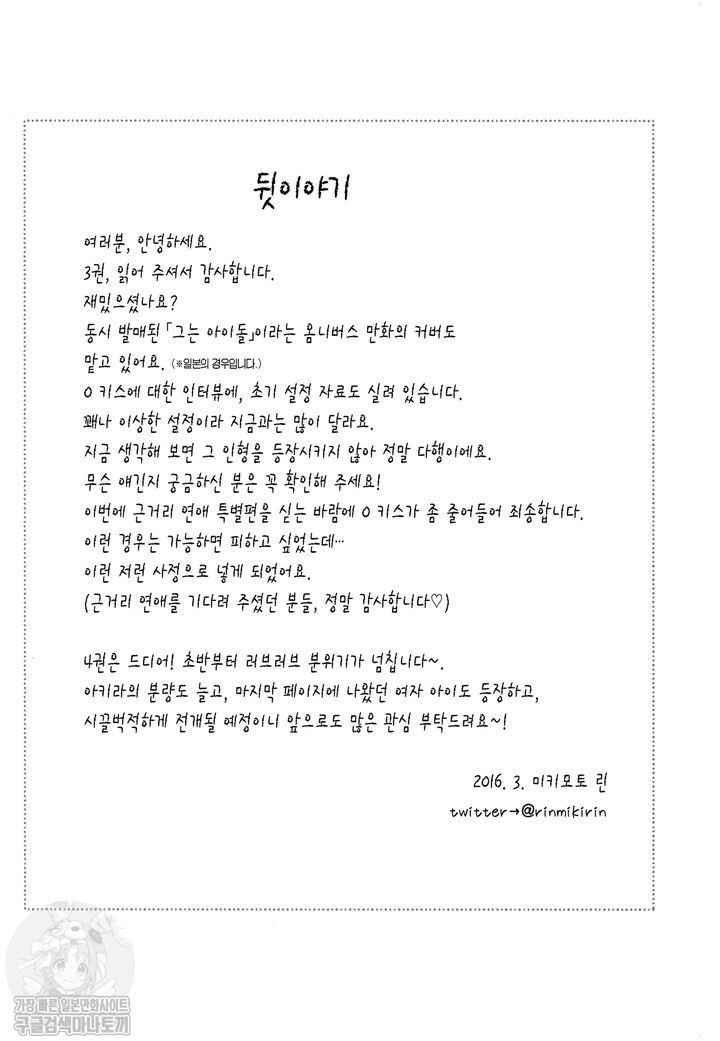 뒷이야기
여러분, 안녕하세요.
3권, 읽어 주셔서 감사합니다.
재밌으셨나요?
동시 발매된 「그는 아이돌」이라는 옴니버스 만화의 커버도
맡고 있어요. (※일본의 경우입니다.)
0 키스에 대한 인터뷰에, 초기 설정 자료도 실려 있습니다.
꽤나 이상한 설정이라 지금과는 많이 달라요.
지금 생각해 보면 그 인형을 등장시키지 않아 정말 다행이에요.
무슨 얘긴지 궁금하신 분은 꼭 확인해 주세요!
이번에 근거리 연애 특별편을 싣는 바람에 0 키스가 좀 줄어들어 죄송합니다.
이런 경우는 가능하면 피하고 싶었는데…
이런 저런 사정으로 넣게 되었어요.
(근거리 연애를 기다려 주셨던 분들, 정말 감사합니다♡)
4권은 드디어! 초반부터 러브러브 분위기가 넘칩니다~.
아키라의 분량도 늘고, 마지막 페이지에 나왔던 여자 아이도 등장하고,
시끌벅적하게 전개될 예정이니 앞으로도 많은 관심 부탁드려요~!
2016. 3. 미키모토 린
twitter→@rinmikirin
가장 빠른 일본만화사이트
구글검색마나토끼